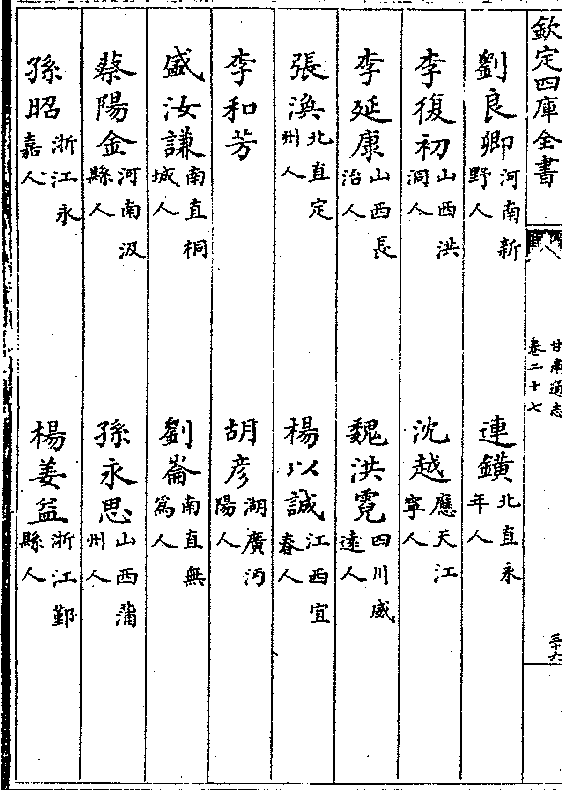 欽定四庫全書
甘肅通志
卷二十七
三十六
劉良卿 河南新野人 連鑛 北直永年人
李復初 山西洪洞人 沈越 應天江寧人
李延康 山西長治人 魏洪霓 四川威遠人
張渙 北直定州人 楊以誠 江西宜春人
李和芳 胡彦 湖廣沔陽人
盛汝謙 南直桐城人 劉崙 南直無為人
蔡陽金 河南汲縣人 孫永思 山西蒲州人
孫昭 浙江永嘉人 楊姜益 浙江鄞縣人